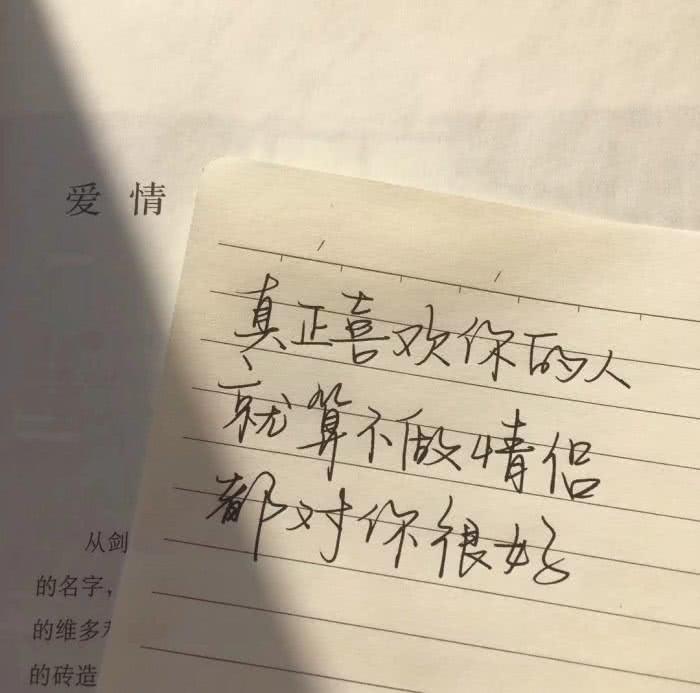 爱情
真正喜欢你的人
就算不做情侣
都对你很好
从剑
的名字，
的维多
的砖造